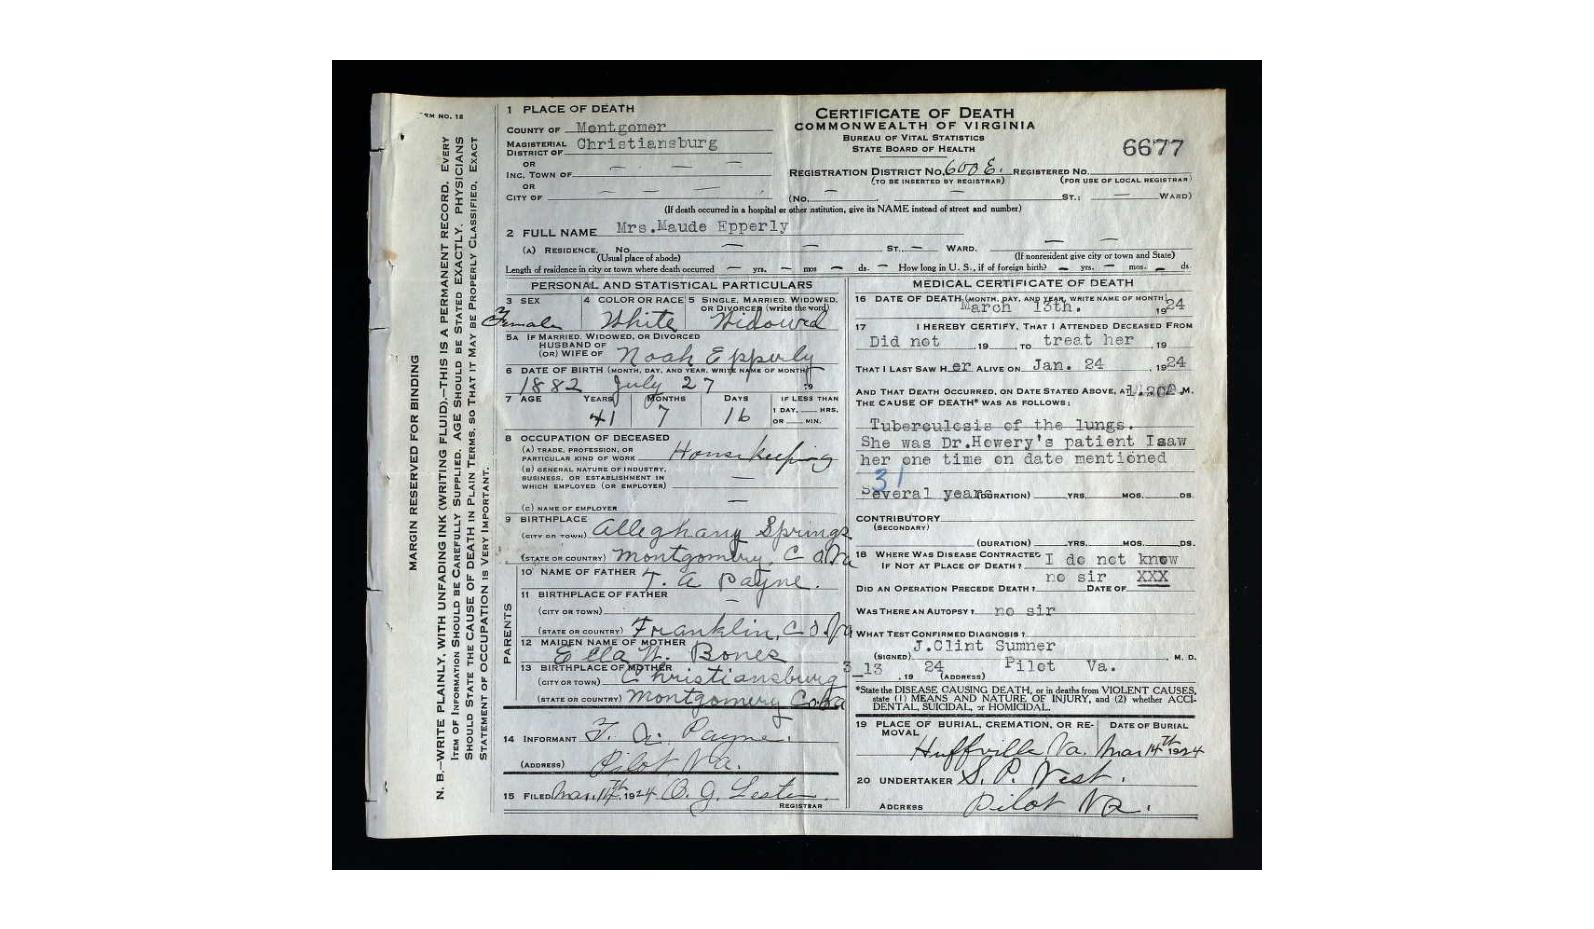 FORM NO. 18
MARGIN RESERVED FOR BINDING
N. B.—WRITE PLAINLY, WITH UNFADING INK (WRITING FLUID),—THIS IS A PERMANENT RECORD. EVERY
ITEM OF INFORMATION SHOULD BE CAREFULLY SUPPLIED. AGE SHOULD BE STATED EXACTLY. PHYSICIANS
SHOULD STATE THE CAUSE OF DEATH IN PLAIN TERMS, SO THAT IT MAY BE PROPERLY CLASSIFIED. EXACT
STATEMENT OF OCCUPATION IS VERY IMPORTANT.
1 PLACE OF DEATH
COUNTY OF Montgomer
MAGISTERIAL DISTRICT OF Christiansburg
OR
INC. TOWN OF — — —
OR
CITY OF — — —
CERTIFICATE OF DEATH
COMMONWEALTH OF VIRGINIA
BUREAU OF VITAL STATISTICS
STATE BOARD OF HEALTH
6677
REGISTRATION DISTRICT No. 600 E. REGISTERED No.
(TO BE INSERTED BY REGISTRAR) (FOR USE OF LOCAL REGISTRAR)
(No. — — ST.; — WARD)
(If death occurred in a hospital or other institution, give its NAME instead of street and number)
2 FULL NAME Mrs.Maude Epperly
(A) RESIDENCE. No. — — ST. — WARD. — —
(Usual place of abode) (If nonresident give city or town and State)
Length of residence in city or town where death occurred — yrs. — mos — ds. — How long in U. S., if of foreign birth? — yrs. — mos. — ds.
PERSONAL AND STATISTICAL PARTICULARS
3 SEX 4 COLOR OR RACE 5 SINGLE, MARRIED, WIDOWED, OR DIVORCED (write the word)
Female White Widowed
5A IF MARRIED, WIDOWED, OR DIVORCED
HUSBAND OF
(OR) WIFE OF Noah Epperly
6 DATE OF BIRTH (MONTH, DAY, AND YEAR, WRITE NAME OF MONTH)
1882 July 27 19
7 AGE YEARS MONTHS DAYS IF LESS THAN
41 7 16 1 DAY, HRS.
OR MIN.
8 OCCUPATION OF DECEASED
(A) TRADE, PROFESSION, OR
PARTICULAR KIND OF WORK Housekeeping
(B) GENERAL NATURE OF INDUSTRY,
BUSINESS, OR ESTABLISHMENT IN
WHICH EMPLOYED (OR EMPLOYER) —
—
(C) NAME OF EMPLOYER
9 BIRTHPLACE
(CITY OR TOWN) Alleghany Springs
(STATE OR COUNTRY) Montgomery, Co Va
PARENTS
10 NAME OF FATHER T. A Payne.
11 BIRTHPLACE OF FATHER
(CITY OR TOWN) —
(STATE OR COUNTRY) Franklin, Co Va
12 MAIDEN NAME OF MOTHER
Ella W. Bones
13 BIRTHPLACE OF MOTHER
(CITY OR TOWN) Christiansburg
(STATE OR COUNTRY) Montgomery Co Va
14 INFORMANT T. A. Payne.
(ADDRESS) Pilot, Va.
15 FILED Mar. 14th 1924 O. J. Lester
REGISTRAR
MEDICAL CERTIFICATE OF DEATH
16 DATE OF DEATH (MONTH, DAY, AND YEAR, WRITE NAME OF MONTH)
March 13th. 1924
17 I HEREBY CERTIFY, THAT I ATTENDED DECEASED FROM
Did not , 19 , TO treat her , 19
THAT I LAST SAW HER ALIVE ON Jan. 24 , 1924
AND THAT DEATH OCCURRED, ON DATE STATED ABOVE, AT M.
THE CAUSE OF DEATH* WAS AS FOLLOWS:
Tuberculosis of the lungs.
She was Dr.Howery's patient Isaw
her one time on date mentioned
31
Several years (DURATION) YRS. MOS. DS.
CONTRIBUTORY
(SECONDARY)
(DURATION) YRS. MOS. DS.
18 WHERE WAS DISEASE CONTRACTED
IF NOT AT PLACE OF DEATH? I do not know
no sir XXX
DID AN OPERATION PRECEDE DEATH? DATE OF
WAS THERE AN AUTOPSY? no sir
WHAT TEST CONFIRMED DIAGNOSIS?
(SIGNED) J.Clint Sumner M. D.
3 13 , 19 24 (ADDRESS) Pilot Va.
*State the DISEASE CAUSING DEATH, or in deaths from VIOLENT CAUSES,
state (1) MEANS AND NATURE OF INJURY, and (2) whether ACCI-
DENTAL, SUICIDAL, or HOMICIDAL.
19 PLACE OF BURIAL, CREMATION, OR RE- DATE OF BURIAL
MOVAL
Huffville Va. Mar 14th 1924
20 UNDERTAKER S. P. Vest.
ADDRESS Pilot Va.